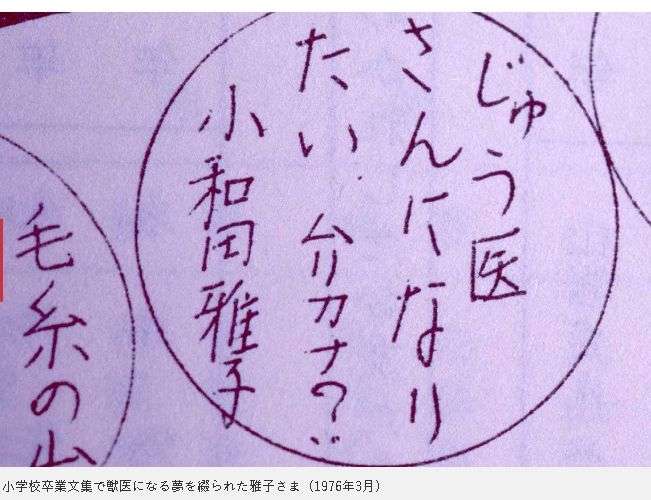 じゅう医
さんになり
たい ムリカナ?
小和田雅子
毛糸の
小学校卒業文集で獣医になる夢を綴られた雅子さま（1976年3月）